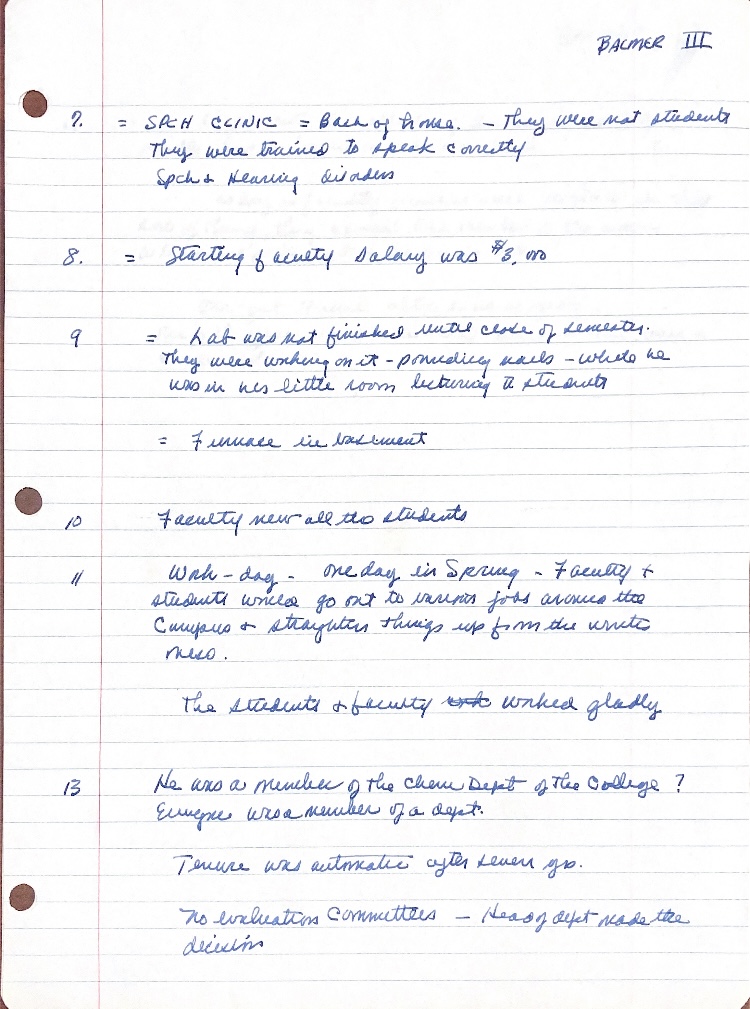 BALMER III
7. = SPCH CLINIC = Back of house. - They were not students
They were trained to speak correctly
Spch & Hearing disorders
8. = Starting faculty salary was $3,000
9 = Lab was not finished until close of semester.
They were working on it - pounding nails - while he
was in his little room lecturing to students
= Furnace in basement
10 Faculty new all the students
11 Work-day - one day in Spring - Faculty &
students would go out to various jobs around the
Campus & straighten things up from the winter
mess.
The students & faculty worked gladly
13 He was a member of the Chem Dept of the College ?
Everyone was a member of a dept.
Tenure was automatic after seven yrs.
No evaluation committees - Head of dept made the
decision